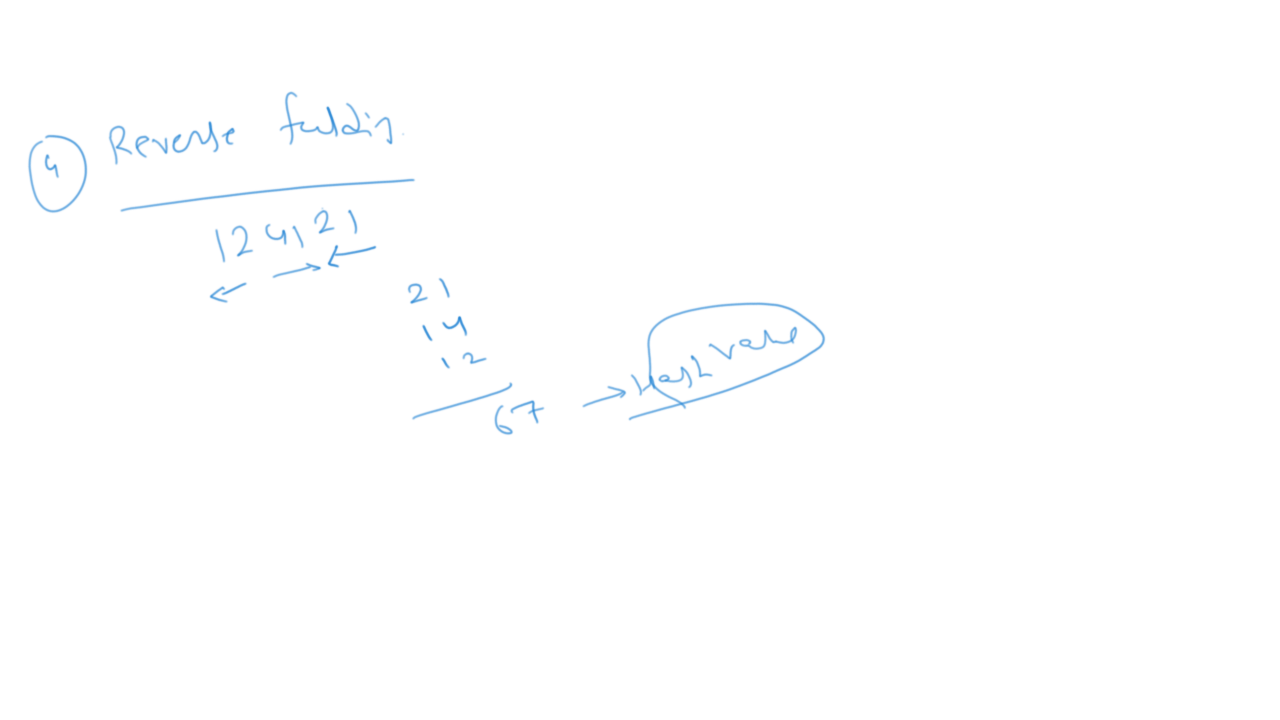 4 Reverse folding
124121
21
14
12
67 → Hash Value